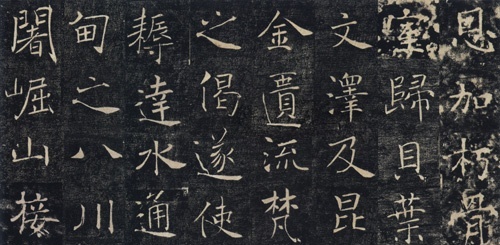 恩加朽骨
室歸貝葉
文澤及昆
金匱流梵
之偈遂使
耨達水通
甸之八川
闍崛山接